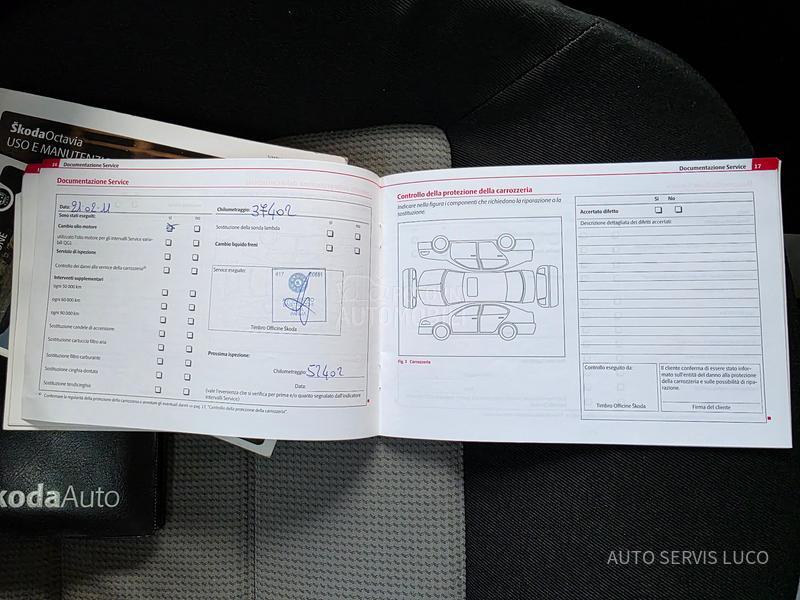 ŠkodaOctavia
USO E MANUTENZI
16 Documentazione Service
Documentazione Service
Data: 21.02.11
Chilometraggio: 37402
Sono stati eseguiti:
sì
no
sì
no
Cambio olio motore
Sostituzione della sonda lambda
utilizzato l'olio motore per gli intervalli Service varia-
bili QG1
Cambio liquido freni
Servizio di ispezione
Controllo dei danni alla vernice della carrozzeria
Service eseguito:
Interventi supplementari
ogni 30 000 km
ogni 60 000 km
ogni 90 000 km
Sostituzione candele di accensione
Timbro Officine Škoda
Sostituzione cartuccia filtro aria
Sostituzione filtro carburante
Prossima ispezione:
Sostituzione cinghia dentata
Chilometraggio: 52402
Data:
Sostituzione tendicinghia
(vale l'evenienza che si verifica per prima e/o quanto segnalato dall'indicatore
intervalli Service)
Confermare la regolarità della protezione della carrozzeria e annotare gli eventuali danni su pag. 17, "Controllo della protezione della carrozzeria".
Documentazione Service 17
Controllo della protezione della carrozzeria
Indicare nella figura i componenti che richiedono la riparazione o la
sostituzione.
Fig. 1 Carrozzeria
Sì No
Accertato difetto
Descrizione dettagliata dei difetti accertati:
Controllo eseguito da:
Timbro Officine Škoda
Il cliente conferma di essere stato infor-
mato sull'entità del danno alla protezione
della carrozzeria e sulle possibilità di ripa-
razione.
Firma del cliente
kodaAuto
AUTO SERVIS LUCO